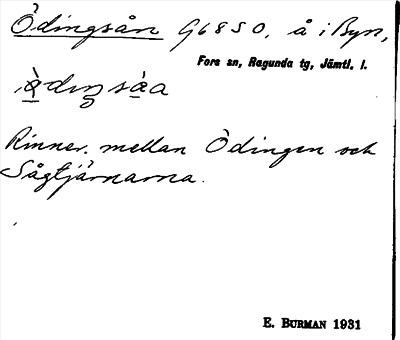 Ödingsån G68SO, å i Byn,
Fors sn, Ragunda tg, Jämtl. l.
Rinner mellan Ödingen och
Sågtjärnarna.
E. BURMAN 1931